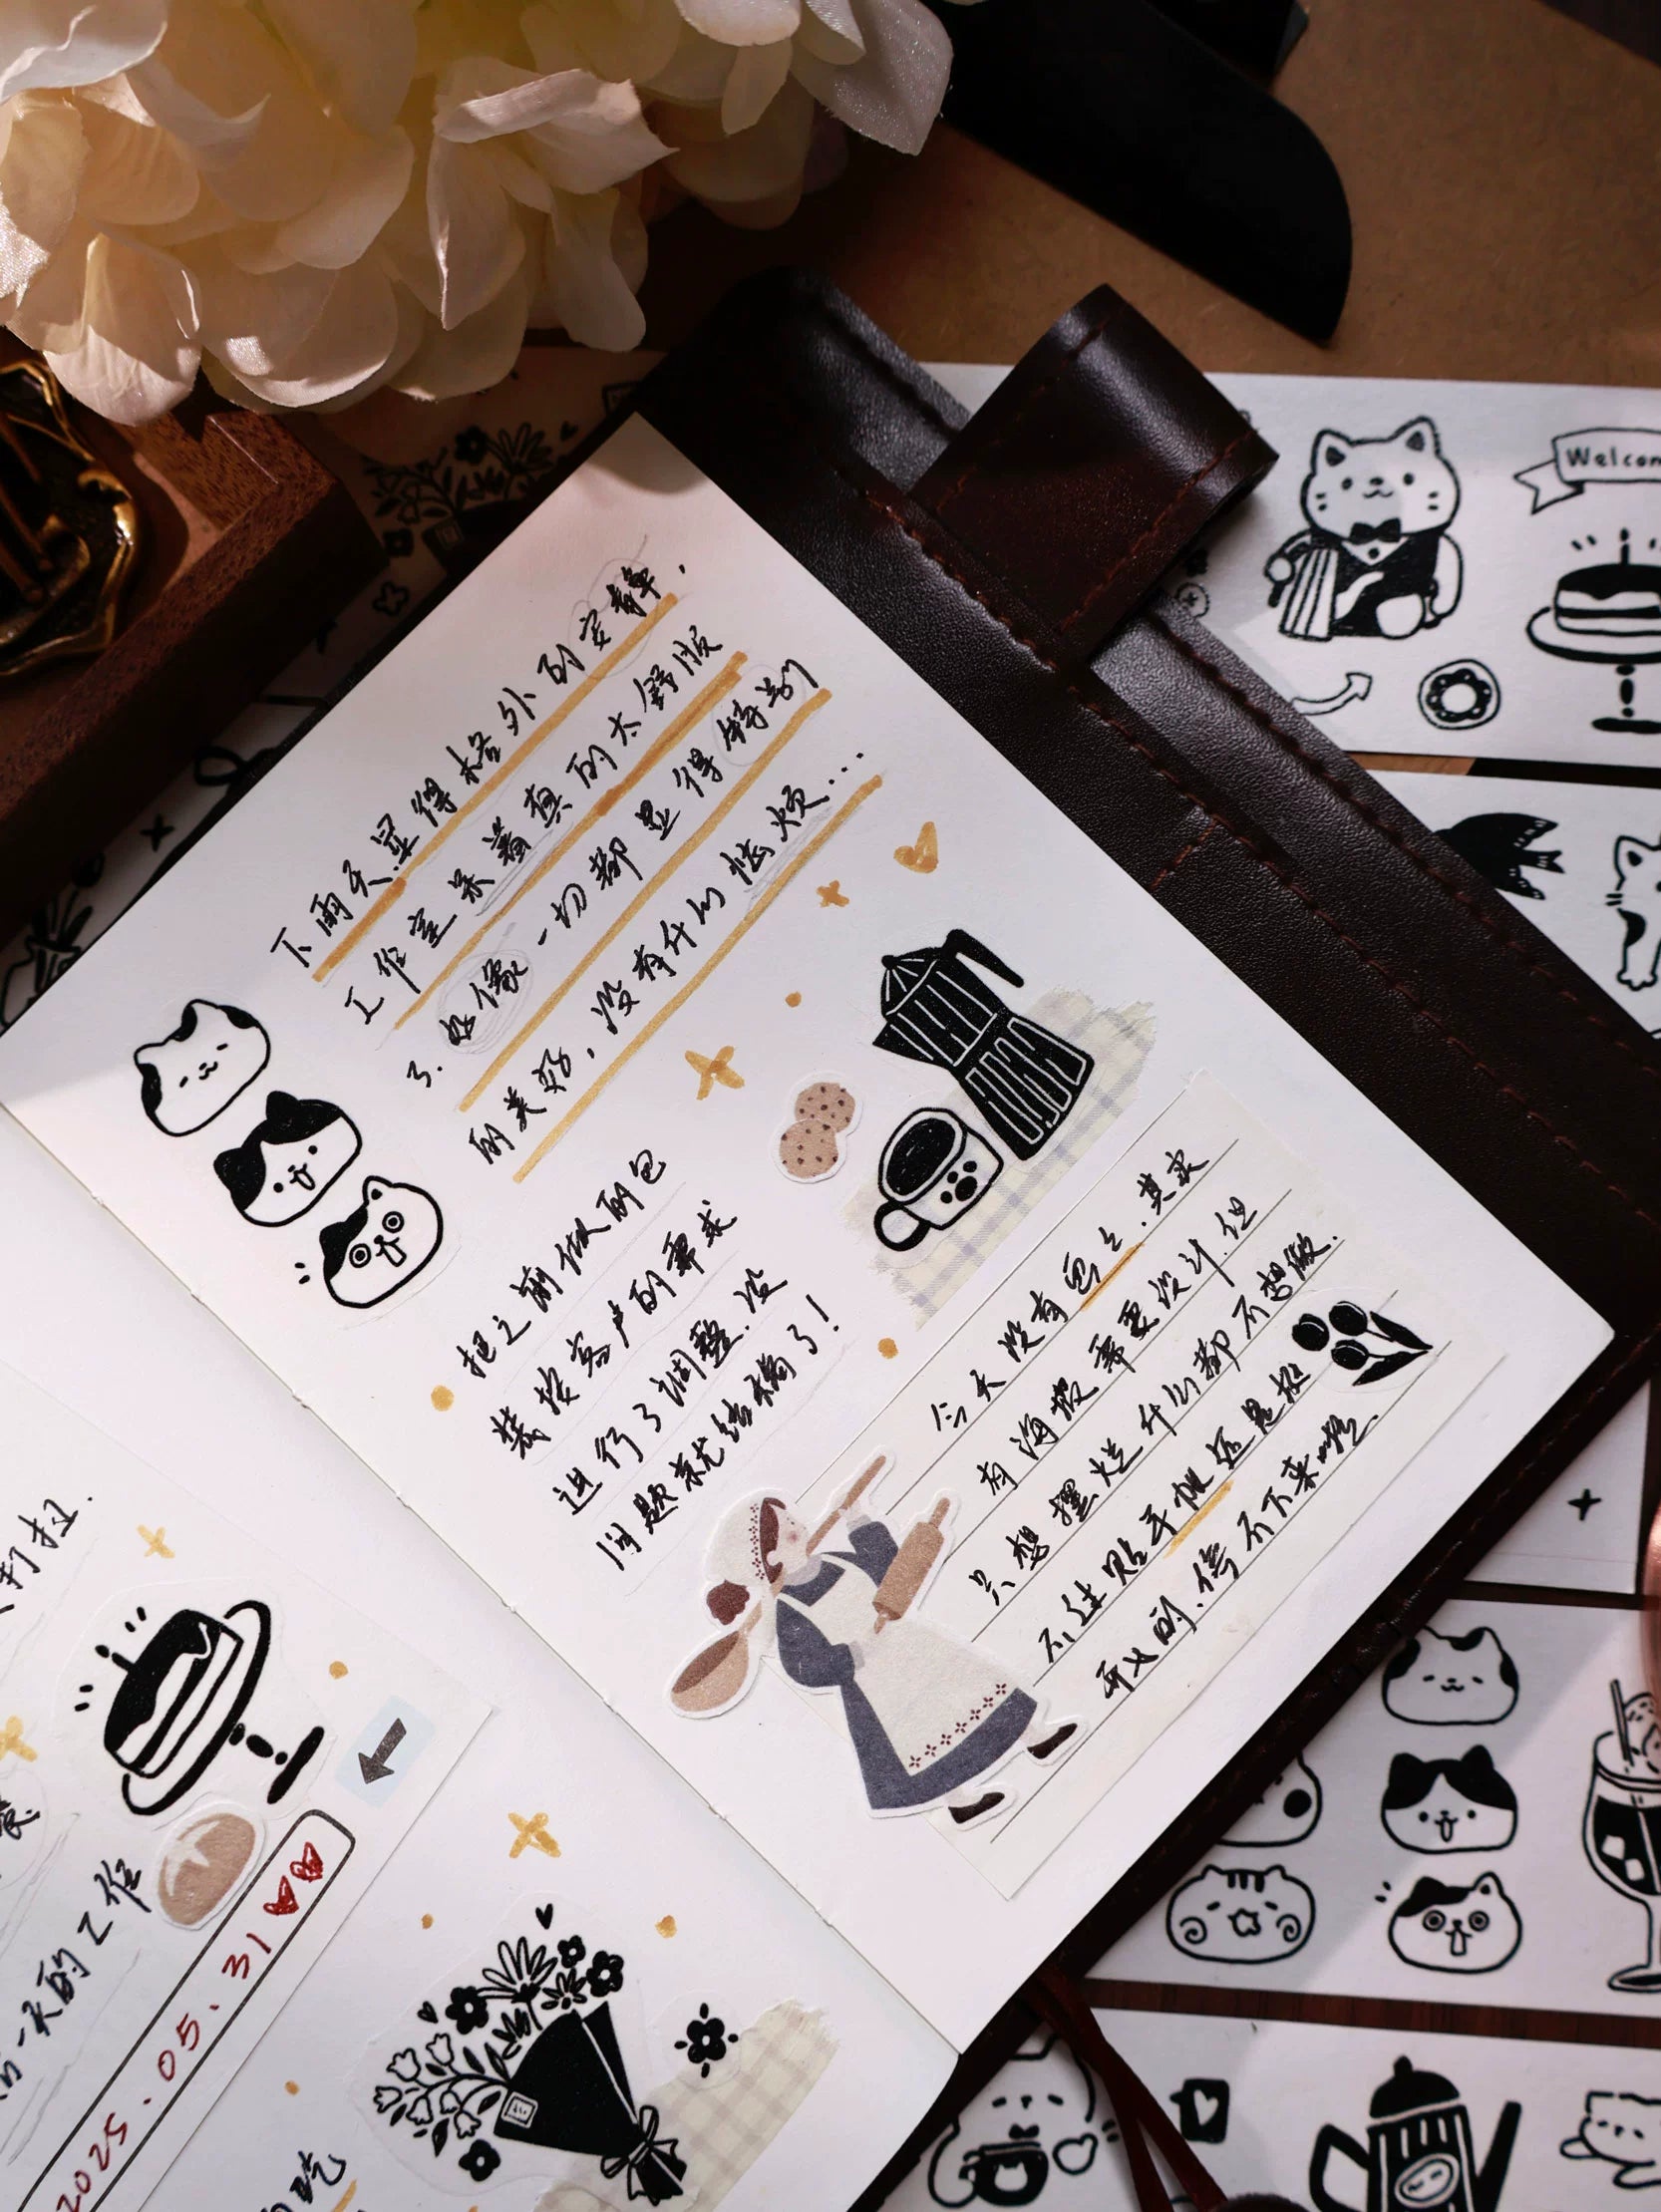 下雨天显得格外的安静,
工作室呆着真的太舒服
了.好像一切都显得特别
的美好,没有什么怅烦...
把之前做的包
装按客户的需求
进行了调整.没
问题就结稿了!
今天没有包上.其实
有海报需要设计.但
只想摆烂什么都不想做.
不过贴手帐还是挺
开心的.停不下来嘿
打扫.
一天的工作
2025.05.31
的吃
Welcom